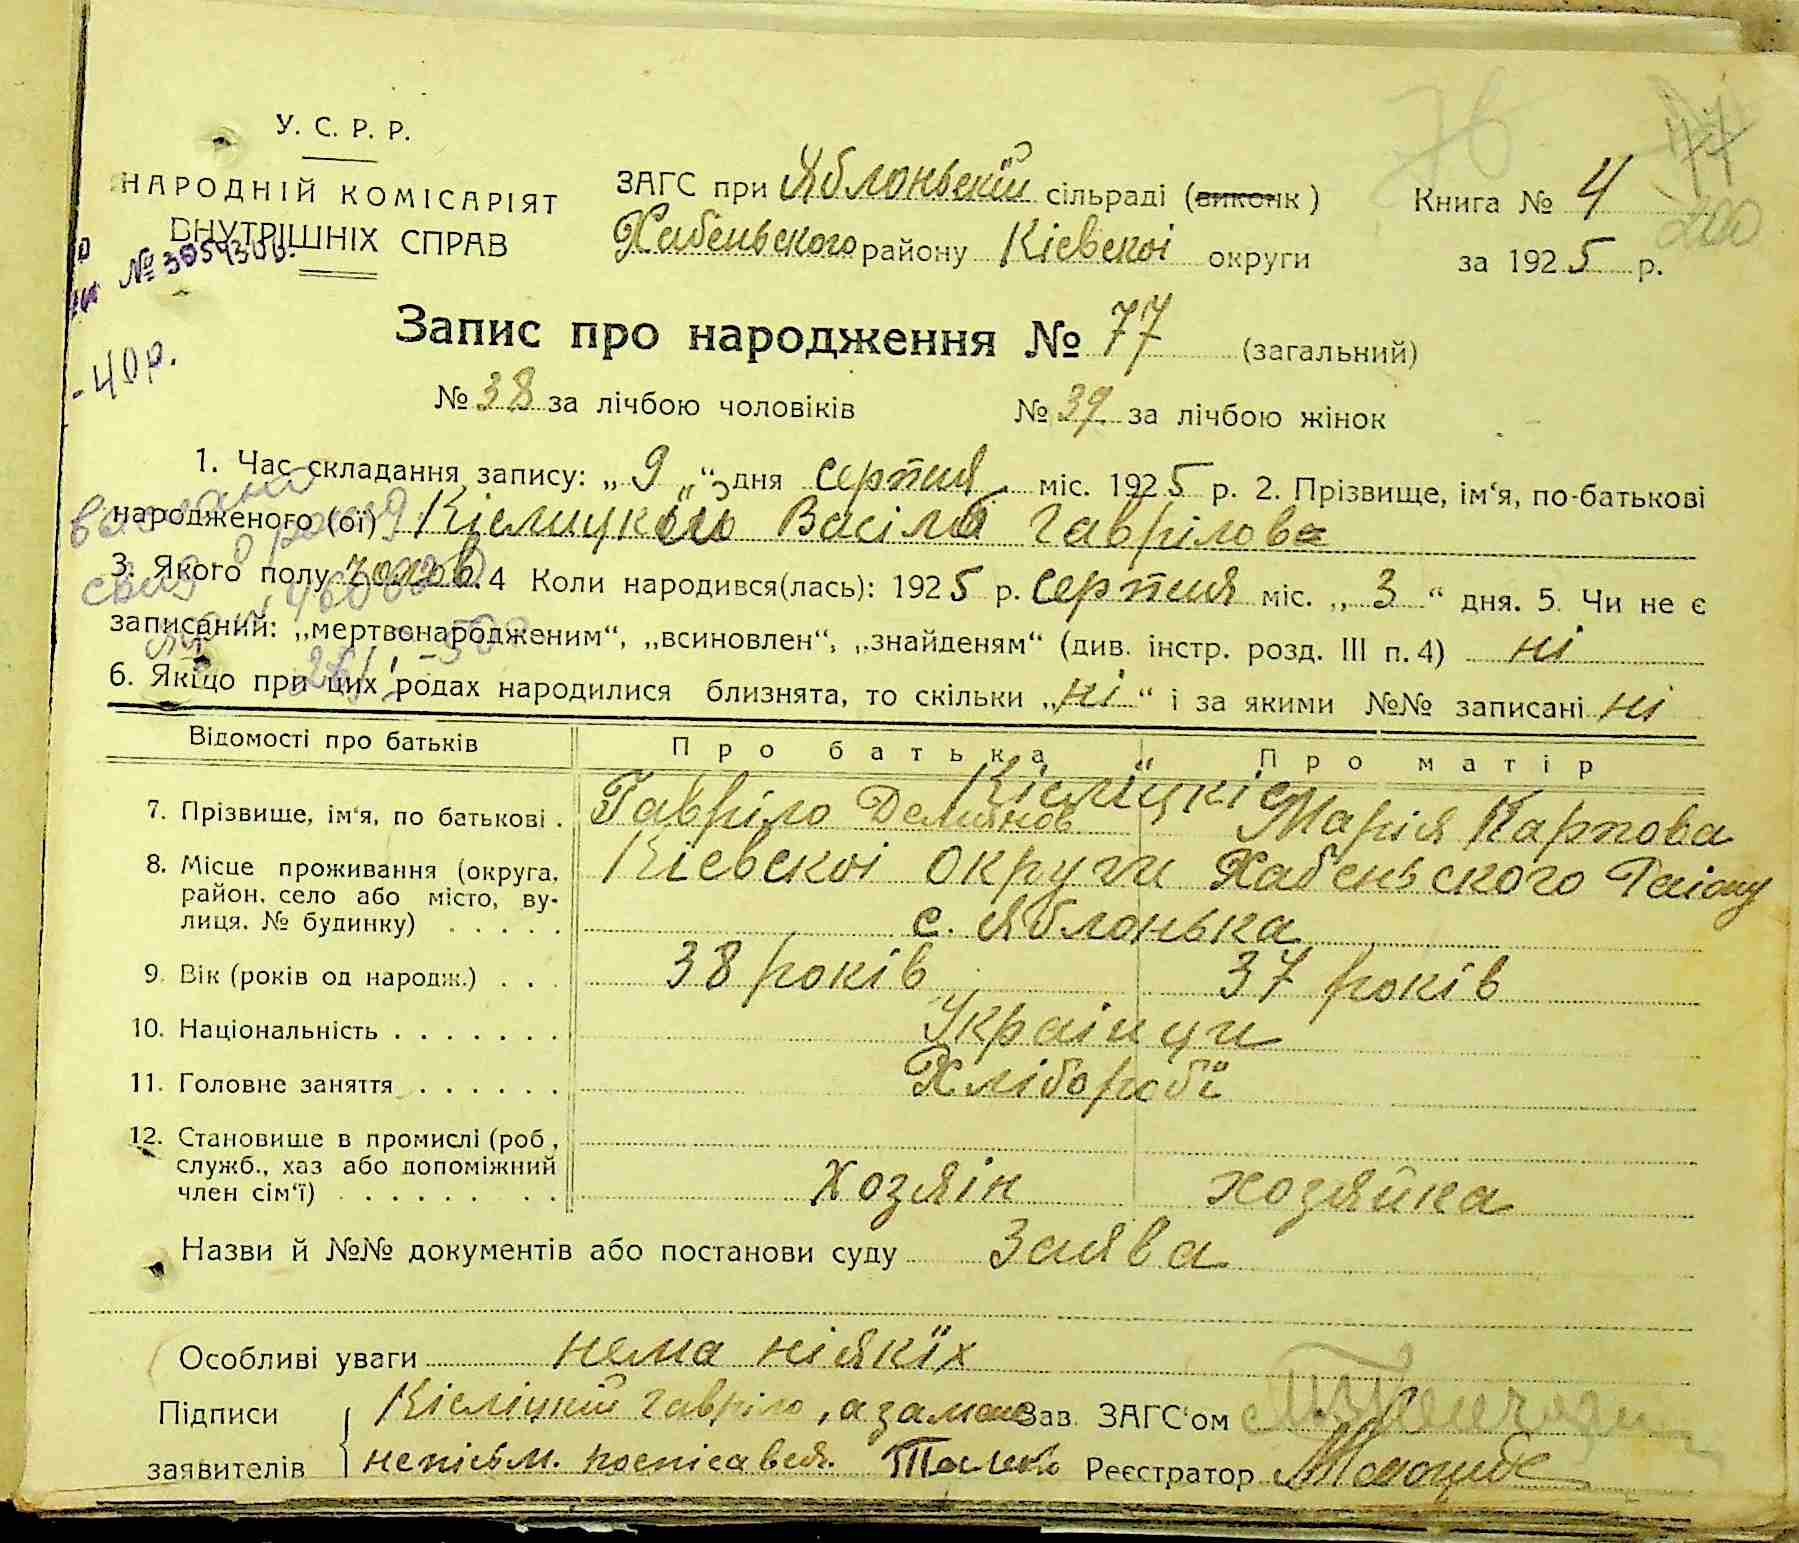 У. С. Р. Р.
НАРОДНІЙ КОМІСАРІЯТ
ВНУТРІШНІХ СПРАВ
ЗАГС при Яблонській сільраді (виконк)
Хабеньського району Кіевскоі округи
Книга № 4
за 1925 р.
76
77
200
- 40 р.
Запис про народження № 77 (загальний)
№ 38 за лічбою чоловіків № 39 за лічбою жінок
1. Час складання запису: „ 9 “ дня серпня міс. 1925 р. 2. Прізвище, ім‘я, по-батькові
народженого (ої) Кіслицький Васіль Гаврілов
3. Якого полу чолов. 4 Коли народився(лась): 1925 р. Серпня міс. „ 3 “ дня. 5. Чи не є
записаний: „мертвонародженим“, „всиновлен“, „знайденям“ (див. інстр. розд. III п. 4) ні
6. Якщо при цих родах народилися близнята, то скільки „ ні “ і за якими №№ записані ні
Відомості про батьків Про батька Про матір
Кіслїцкіе
7. Прізвище, ім‘я, по батькові . Гавріло Демянов Марія Карпова
8. Місце проживання (округа, район, село або місто, вулиця. № будинку) . . . . . Кіевскоі округи Хабеньского Раіону
с. Яблонька
9. Вік (років од народж.) . . . 38 років 37 років
10. Національність . . . . . . . Украінци
11. Головне заняття . . . . . . Хліборобї
12. Становище в промислі (роб., служб., хаз або допоміжний член сім‘ї) . . . . . . . . Хозяін хозяйка
Назви й №№ документів або постанови суду Заява
Особливі уваги нема ніякїх
Підписи заявителів Кісліцкий Гавріло, а за
непісьм. роспісався.
Зав. ЗАГС‘ом
Реєстратор